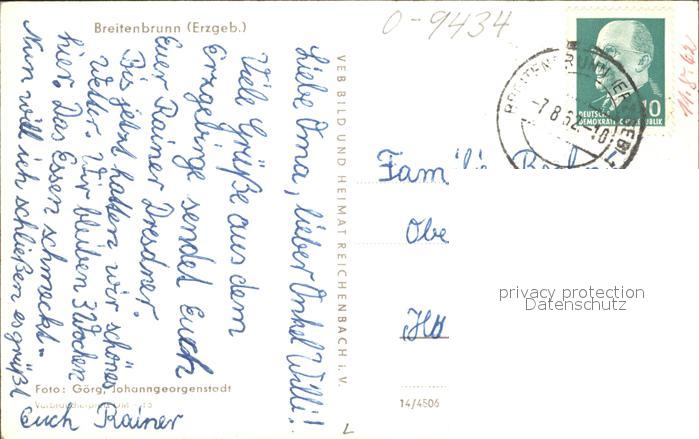 Breitenbrunn (Erzgeb.)
0-9434
Liebe Oma, lieber Onkel Willi!
Viele Grüße aus dem
Erzgebirge sendet Euch
Euer Rainer Dresdner.
Bis jetzt hatten wir schönes
Wetter. Wir bleiben 3 Wochen
hier. Das Essen schmeckt.
Nun will ich schließen es grüßt
Euch Rainer
Foto: Görg, Johanngeorgenstadt
VEB BILD UND HEIMAT REICHENBACH i. V.
14/4506
10
DEUTSCHE
DEMOKRATISCHE REPUBLIK
-7.8.62.-10
Familie
Obe
privacy protection
Datenschutz